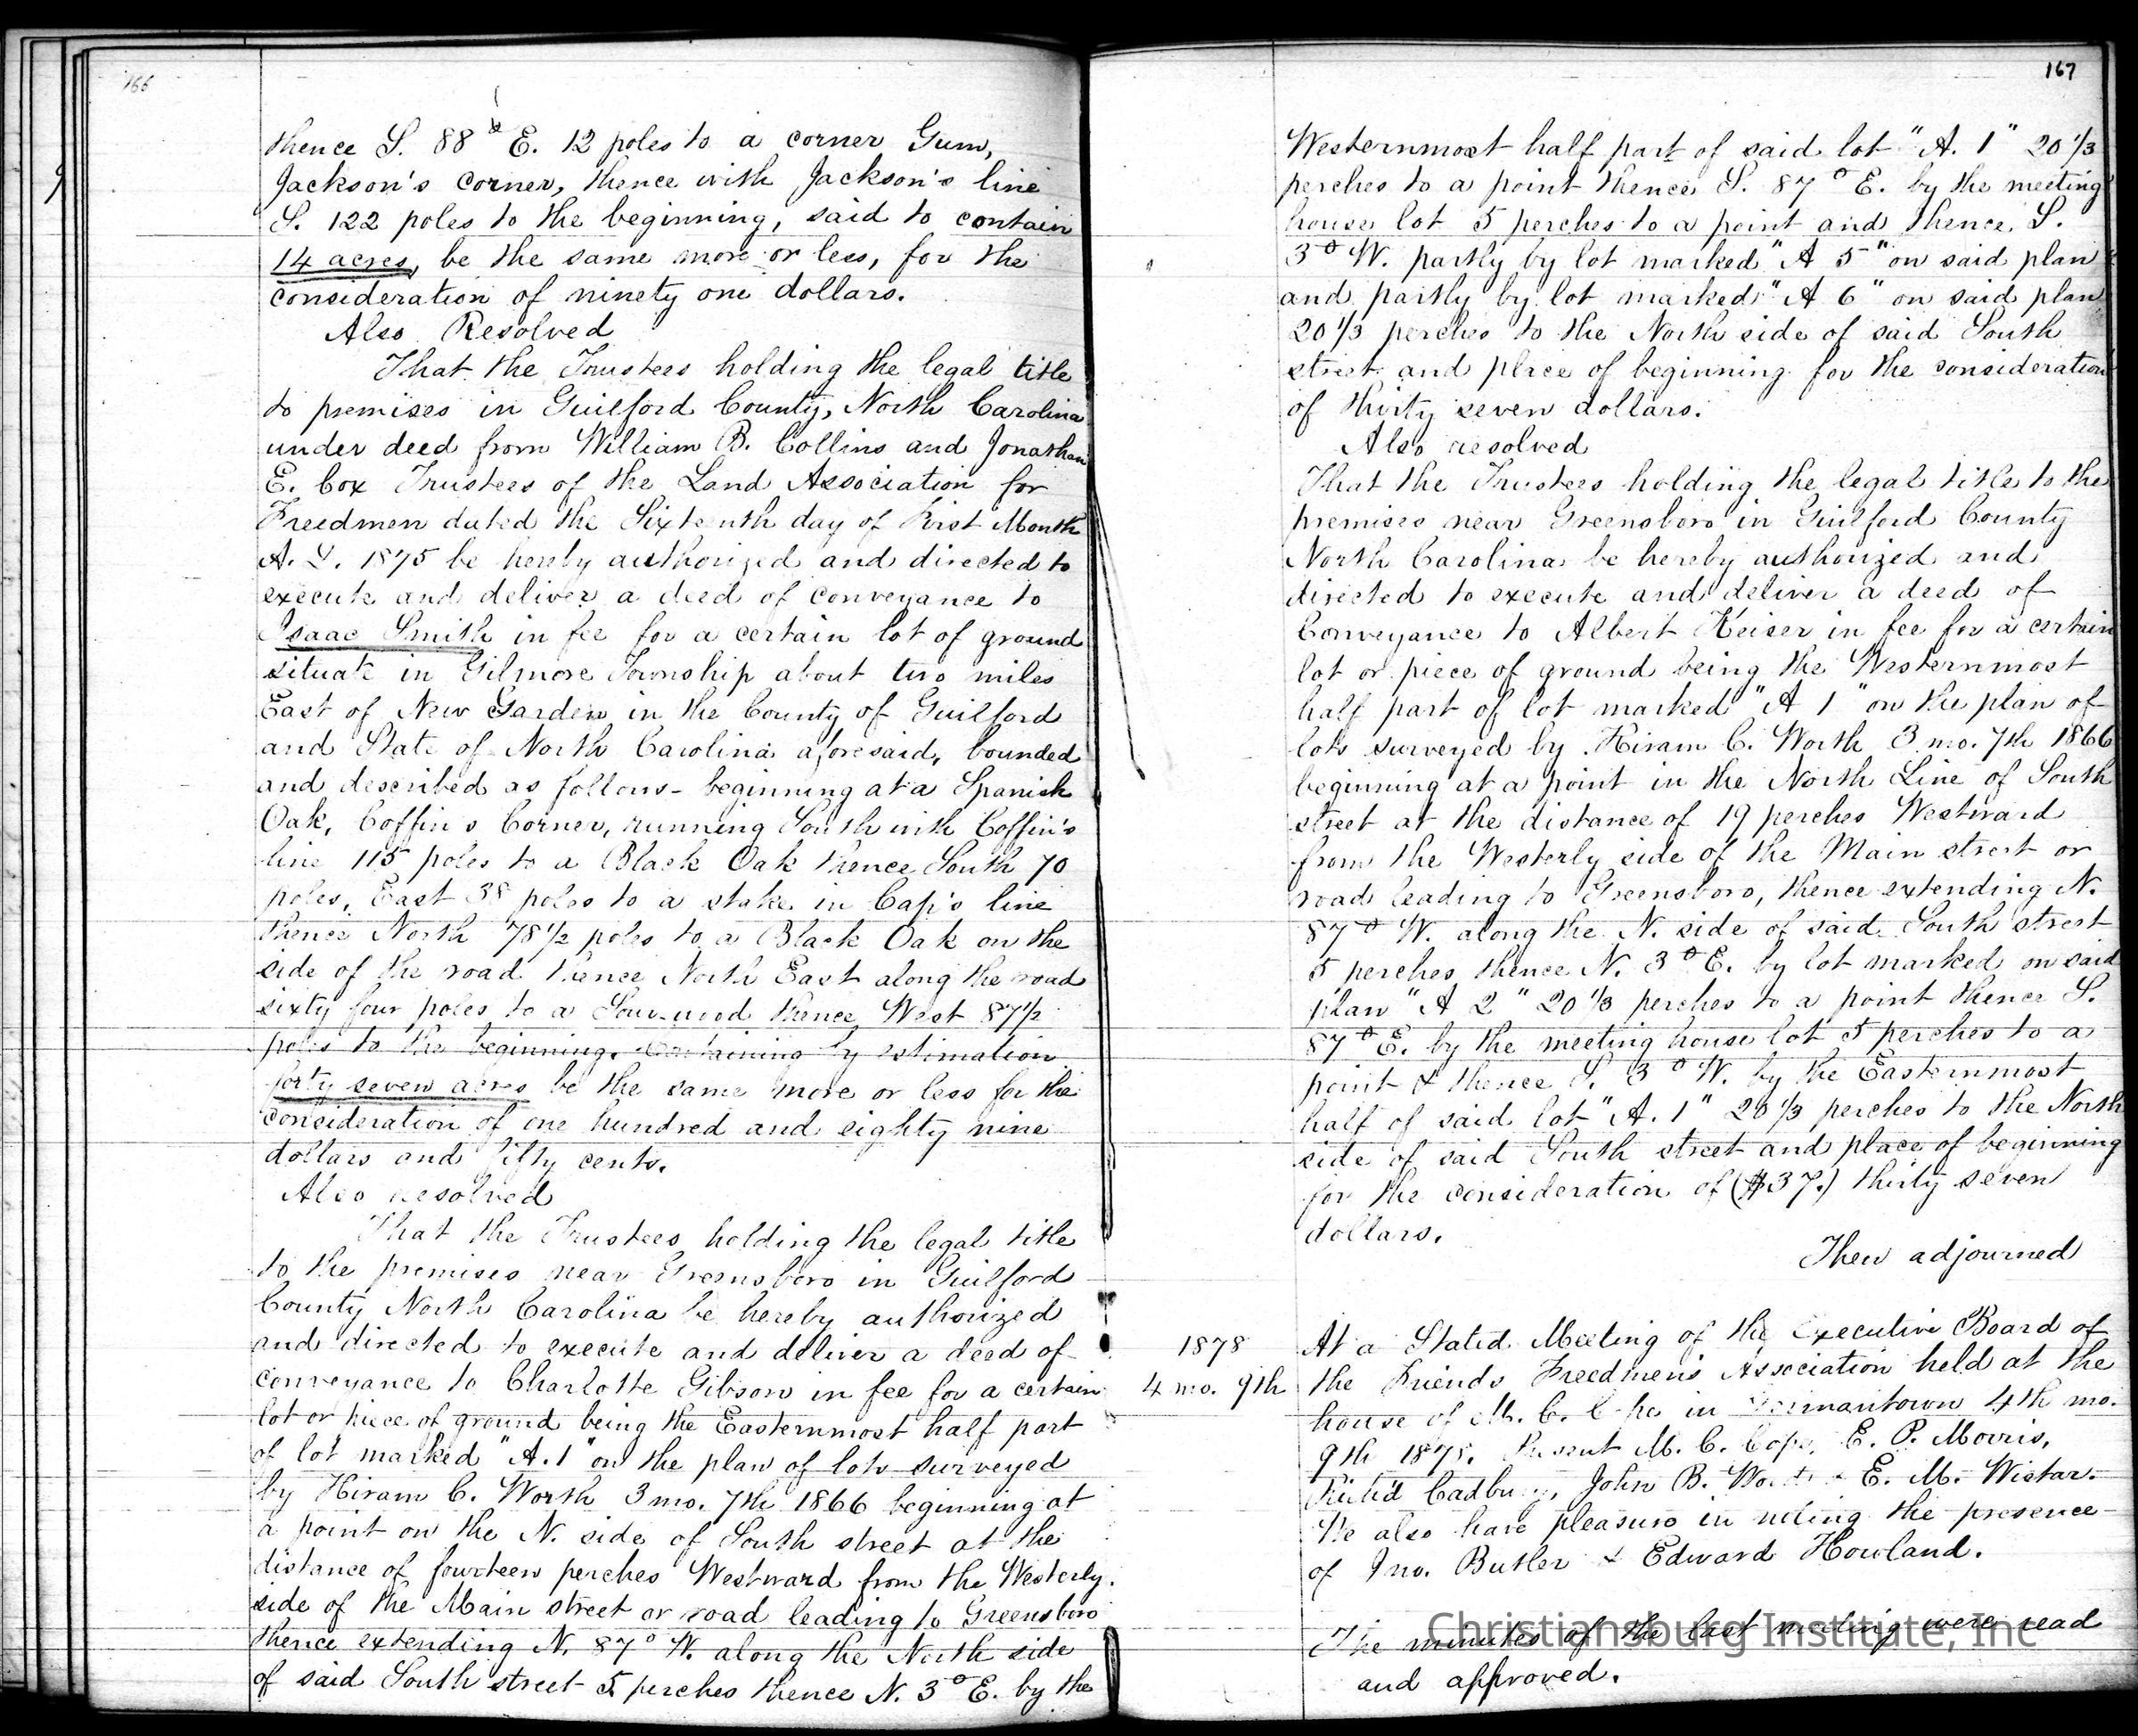 166
thence S. 88° E. 12 poles to a corner Gum,
Jackson's corner, thence with Jackson's line
S. 122 poles to the beginning, said to contain
14 acres, be the same more or less, for the
consideration of ninety one dollars.
Also Resolved
That the Trustees holding the legal title
to premises in Guilford County, North Carolina
under deed from William B. Collins and Jonathan
E. Cox Trustees of the Land Association for
Freedmen dated the Sixteenth day of First Month
A. D. 1875 be hereby authorized and directed to
execute and deliver a deed of conveyance to
Isaac Smith in fee for a certain lot of ground
situate in Gilmore Township about two miles
East of New Garden in the County of Guilford
and State of North Carolina aforesaid, bounded
and described as follows - beginning at a Spanish
Oak, Coffin's Corner, running South with Coffin's
line 115 poles to a Black Oak thence South 70
poles, East 38 poles to a stake in Cap's line
thence North 78 1/2 poles to a Black Oak on the
side of the road thence North East along the road
sixty four poles to a Sour-wood thence West 87 1/2
poles to the beginning. Containing by estimation
forty seven acres be the same more or less for the
consideration of one hundred and eighty nine
dollars and fifty cents.
Also resolved
That the Trustees holding the legal title
to the premises near Greensboro in Guilford
County North Carolina be hereby authorized
and directed to execute and deliver a deed of
conveyance to Charlotte Gibson in fee for a certain
lot or piece of ground being the Easternmost half part
of lot marked "A. 1" on the plan of lots surveyed
by Hiram C. Worth 3 mo. 7th 1866 beginning at
a point on the N. side of South street at the
distance of fourteen perches Westward from the Westerly
side of the Main street or road leading to Greensboro
thence extending N. 87° W. along the North side
of said South street 5 perches thence N. 3° E. by the
167
Westernmost half part of said lot "A. 1" 20 1/3
perches to a point thence S. 87° E. by the meeting
house lot 5 perches to a point and thence S.
3° W. partly by lot marked "A 5" on said plan
and partly by lot marked "A 6" on said plan
20 1/3 perches to the North side of said South
street and place of beginning for the consideration
of thirty seven dollars.
Also resolved
That the Trustees holding the legal title to the
premises near Greensboro in Guilford County
North Carolina be hereby authorized and
directed to execute and deliver a deed of
Conveyance to Albert Keiser in fee for a certain
lot or piece of ground being the Westernmost
half part of lot marked "A 1" on the plan of
lots surveyed by Hiram C. Worth 3 mo. 7th 1866
beginning at a point in the North Line of South
street at the distance of 19 perches Westward
from the Westerly side of the Main street or
road leading to Greensboro, thence extending N.
87° W. along the N. side of said South street
5 perches thence N. 3° E. by lot marked on said
plan "A 2" 20 1/3 perches to a point thence S.
87° E. by the meeting house lot 5 perches to a
point & thence S. 3° W. by the Easternmost
half of said lot "A. 1" 20 1/3 perches to the North
side of said South street and place of beginning
for the consideration of ($37.) thirty seven
dollars.
Then adjourned
1878 At a Stated Meeting of the Executive Board of
4 mo. 9th the Friends Freedmen's Association held at the
house of M. C. Cope in Germantown 4th mo.
9th 1878. Present M. C. Cope, E. P. Morris,
Cadbury, John B. & E. M. Wistar.
We also have pleasure in noting the presence
of Jno. Butler & Edward Howland.
The minutes of the last meeting were read
and approved.
Christiansburg Institute, Inc